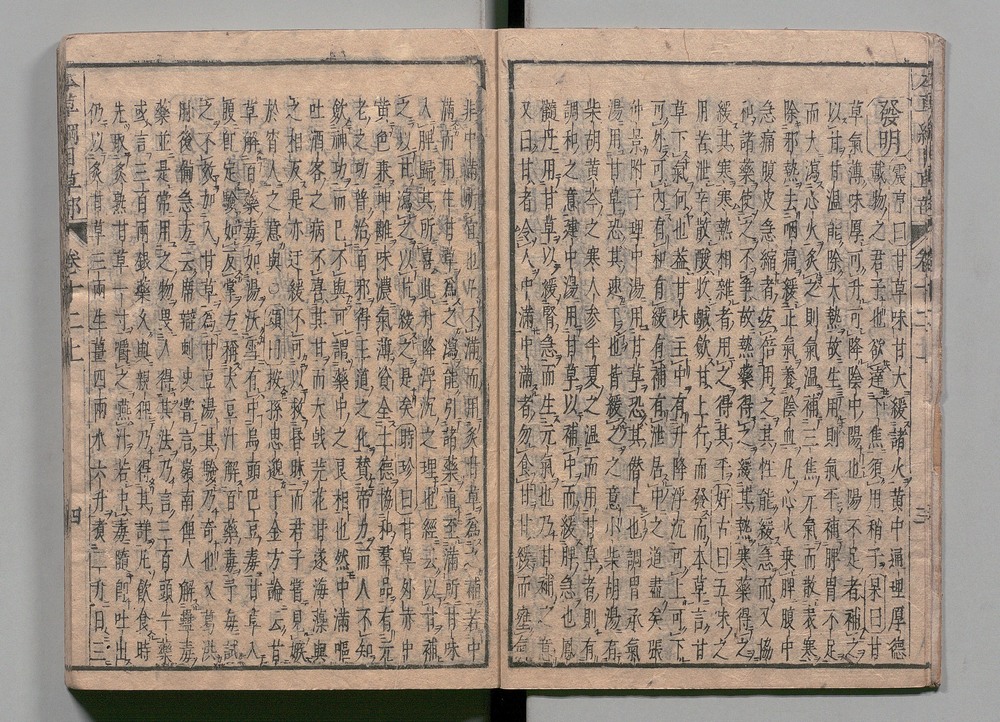 發明 震亨曰甘草味甘大緩諸火黃中通理厚德
載物之君子也欲達下焦須用稍子杲曰甘
草氣薄味厚可升可降陰中陽也陽不足者補之
以甘甘温能除大熱故生用則氣平補脾胃不足
而大瀉心火炙之則氣温補三焦元氣而散表寒
除邪熱去咽痛緩正氣養陰血凡心火乗脾腹中
急痛腹皮急縮者宜倍用之其性能緩急而又協
和諸藥使之不爭故熱藥得之緩其熱寒藥得之
緩其寒寒熱相雜者用之得其平好古曰五味之
用苦泄辛散酸收鹹歛甘上行而發而本草言甘
草下氣何也盖甘味主中有升降浮沉可上可下
可外可内有和有緩有補有泄居中之道盡矣張
仲景附子理中湯用甘草恐其僭上也調胃承氣
湯用甘草恐其速下也皆緩之意小柴胡湯有
柴胡黃芩之寒人參半夏之温而用甘草者則有
調和之意建中湯用甘草以補中而緩脾急也鳳
髓丹用甘草以緩腎急而生元氣也乃甘補之意
又曰甘者令人中滿中滿者勿食甘甘緩而壅氣
非中滿所宜也凡不滿而用炙甘草為之補若中
滿而用生甘草為之瀉能引諸藥直至滿所甘味
入脾歸其所喜此升降浮沉之理也經云以甘補
之以甘瀉之以甘緩之是矣時珍曰甘草外赤中
黃色兼坤離味濃氣薄資全土德協和羣品有元
老之功普治百邪得王道之化贊帝力而人不知
歛神功而已不與可謂藥中之良相也然中滿嘔
吐酒客之病不喜其甘而大戟芫花甘遂海藻與
之相反是亦迂緩不可以救昏昧而君子嘗見嫉
於宵人之意與○頌曰按孫思邈千金方論云甘
草解百藥毒如湯沃雪有中烏頭巴豆毒甘草入
腹即定驗如反掌方稱大豆汁解百藥毒予每試
之不效加入甘草為甘豆湯其驗乃奇也又葛洪
肘後備急方云席辯刺史嘗言嶺南俚人解蠱毒
藥並是常用之物畏人得其法乃言三百頭牛藥
或言三百兩銀藥久與親狎乃得其詳凡飲食時
先取炙熟甘草一寸嚼之嚥汁若中毒隨即吐出
仍以炙甘草三兩生薑四兩水六升煮二升日三
本草綱目草部 卷十二上 四